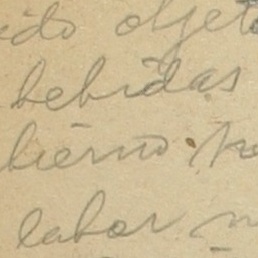 ido objeto
bebidas
bierno
labor